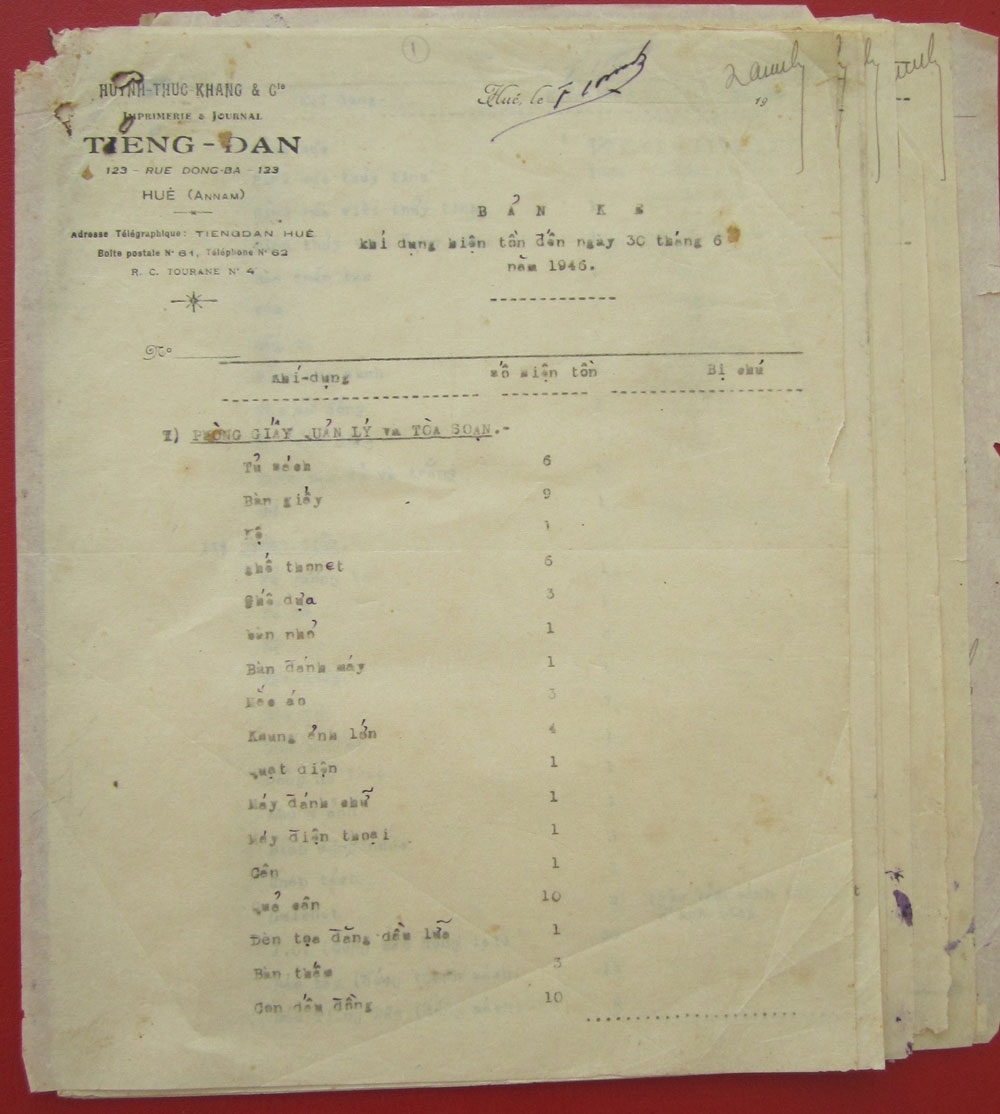 1
HUỲNH-THUC-KHANG & Cie
IMPRIMERIE & JOURNAL
TIENG-DAN
123 - RUE DONG-BA - 123
HUÉ (ANNAM)
Adresse Télégraphique: TIENGDAN HUÉ
Boîte postale No 61, Téléphone No 62
R. C. TOURANE No 4
Huê, le
19
BẢN KÊ
khí dụng hiện tồn đến ngày 30 tháng 6
năm 1946.
No
Khí-dụng số hiện tồn Bị chú
I) PHÒNG GIẤY QUẢN LÝ và TÒA SOẠN.-
Tủ sách 6
Bàn giấy 9
Kệ 1
ghế thonet 6
Ghế dựa 3
bàn nhỏ 1
Bàn đánh máy 1
Mắc áo 3
Khung ảnh lớn 4
Quạt điện 1
Máy đánh chữ 1
Máy điện thoại 1
Cân 1
Quả cân 10
Đèn tọa đăng dầu lửa 1
Bàn thấm 3
Con dấu đồng 10